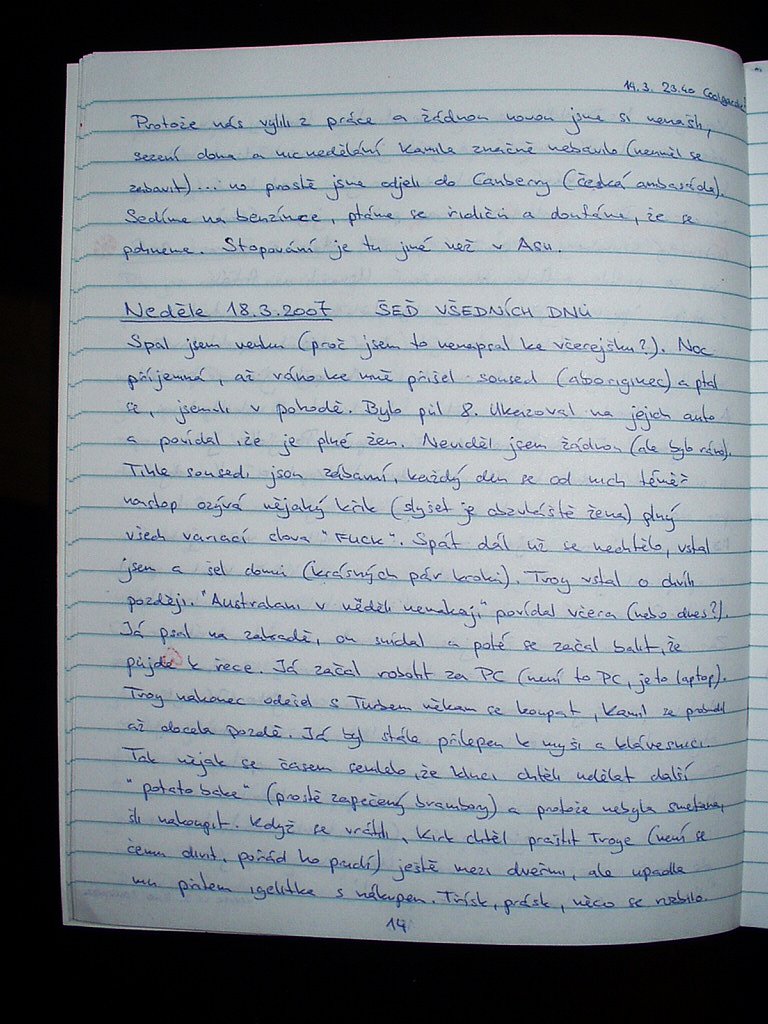 14.3. 23.40 Coolgardie
Protože nás vylili z práce a žádnou novou jsme si nenašli,
sezení doma a nicnedělání Kamila značně nebavilo (neuměl se
zabavit)... no prostě jsme odjeli do Canberry (česká ambasáda).
Sedíme na benzínce, ptáme se řidičů a doufáme, že se
pohneme. Stopování je tu jiné než v Asii.
Neděle 18.3.2007 ŠEĎ VŠEDNÍCH DNŮ
Spal jsem venku (proč jsem to nenapsal ke včerejšku?). Noc
příjemná, až ráno ke mně přišel soused (aboriginec) a ptal
se, jsem-li v pohodě. Bylo půl 8. Ukazoval na jejich auto
a povídal, že je plné žen. Neviděl jsem žádnou (ale bylo ráno).
Tihle sousedi jsou zábavní, každý den se od nich téměř
nonstop ozývá nějaký křik (slyšet je obzvláště žena) plný
všech variací slova "Fuck". Spát dál už se nechtělo, vstal
jsem a šel domů (krásných pár kroků). Troy vstal o chvíli
později. "Australani v neděli nemakaji" povídal včera (nebo dnes?).
Já psal na zahradě, on snídal a poté se začal balit, že
půjde k řece. Já začal robotit za PC (není to PC, je to laptop).
Troy nakonec odešel s Turbem někam se koupat, Kamil se probudil
až docela pozdě. Já byl stále přilepen k myši a klávesnici.
Tak nějak se časem semlelo, že kluci chtěli udělat další
"potato bake" (prostě zapečený brambory) a protože nebyla smetana,
šli nakoupit. Když se vrátili, Kirk chtěl praštit Troye (není se
čemu divit, pořád ho prudí) ještě mezi dveřmi, ale upadla
mu přitom igelitka s nákupem. Třísk, prásk, něco se rozbilo.
14